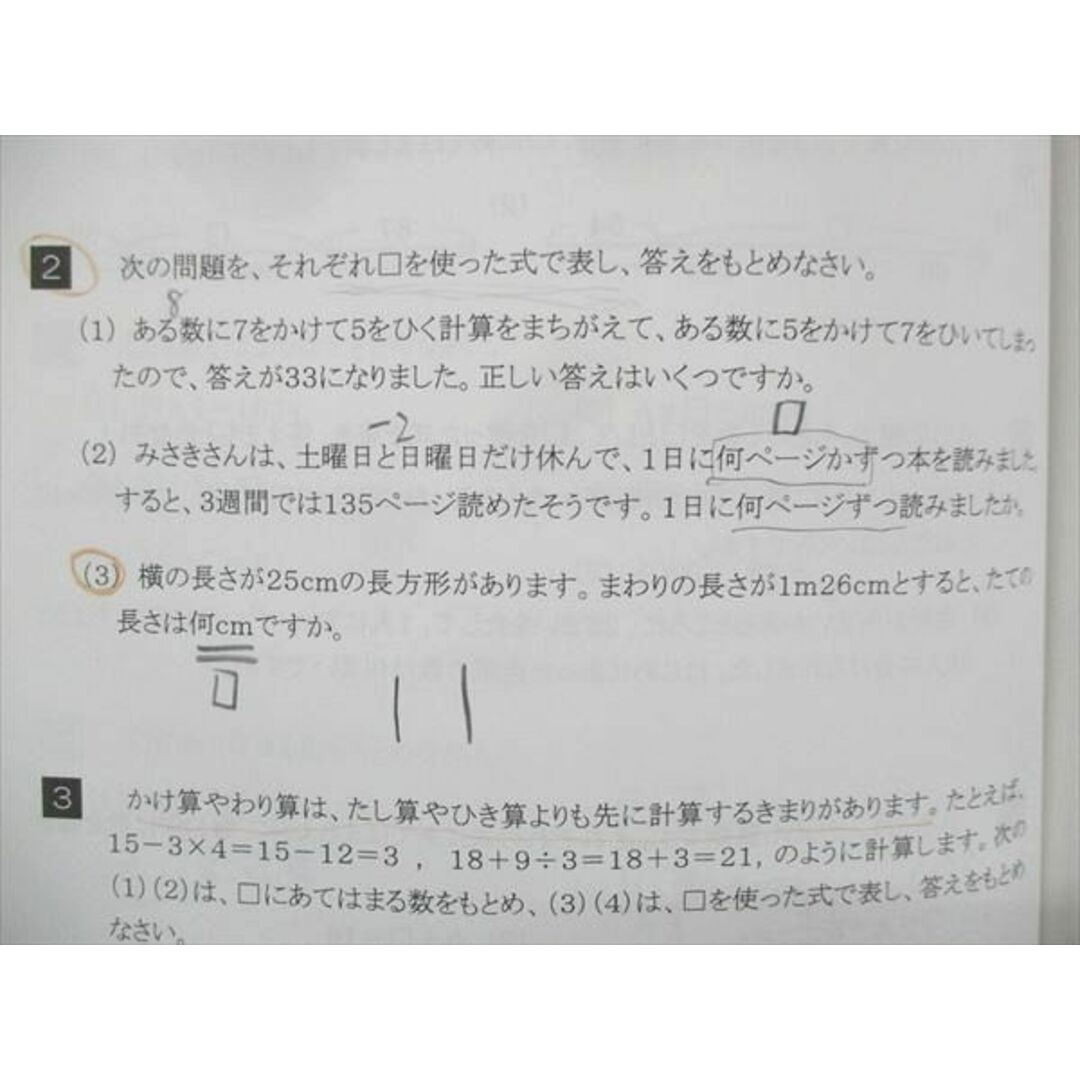 2 次の問題を、それぞれ□を使った式で表し、答えをもとめなさい。
8
(1) ある数に7をかけて5をひく計算をまちがえて、ある数に5をかけて7をひいてしまっ
たので、答えが33になりました。正しい答えはいくつですか。
-2 □
(2) みさきさんは、土曜日と日曜日だけ休んで、1日に何ページかずつ本を読みました
すると、3週間では135ページ読めたそうです。1日に何ページずつ読みましたか。
(3) 横の長さが25cmの長方形があります。まわりの長さが1m26cmとすると、たての
長さは何cmですか。
□
3 かけ算やわり算は、たし算やひき算よりも先に計算するきまりがあります。たとえば、
15-3×4=15-12=3 , 18+9÷3=18+3=21, のように計算します。次の
(1)(2)は、□にあてはまる数をもとめ、(3)(4)は、□を使った式で表し、答えをもとめ
なさい。